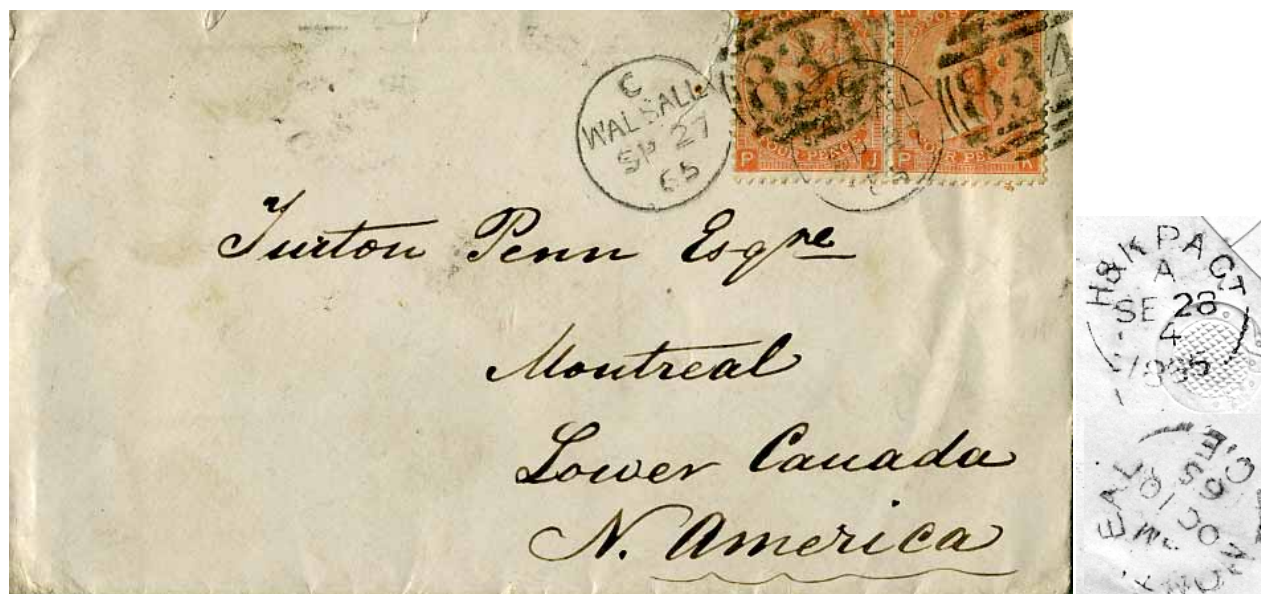 C
WALSALL
SP 27
65
834
834
FOUR PENCE
P J
P K
Turton Penn Esqre
Montreal
Lower Canada
N. America
H&K PACT
A
SE 28
4
1865
MONTREAL C.E.
OC 10
65